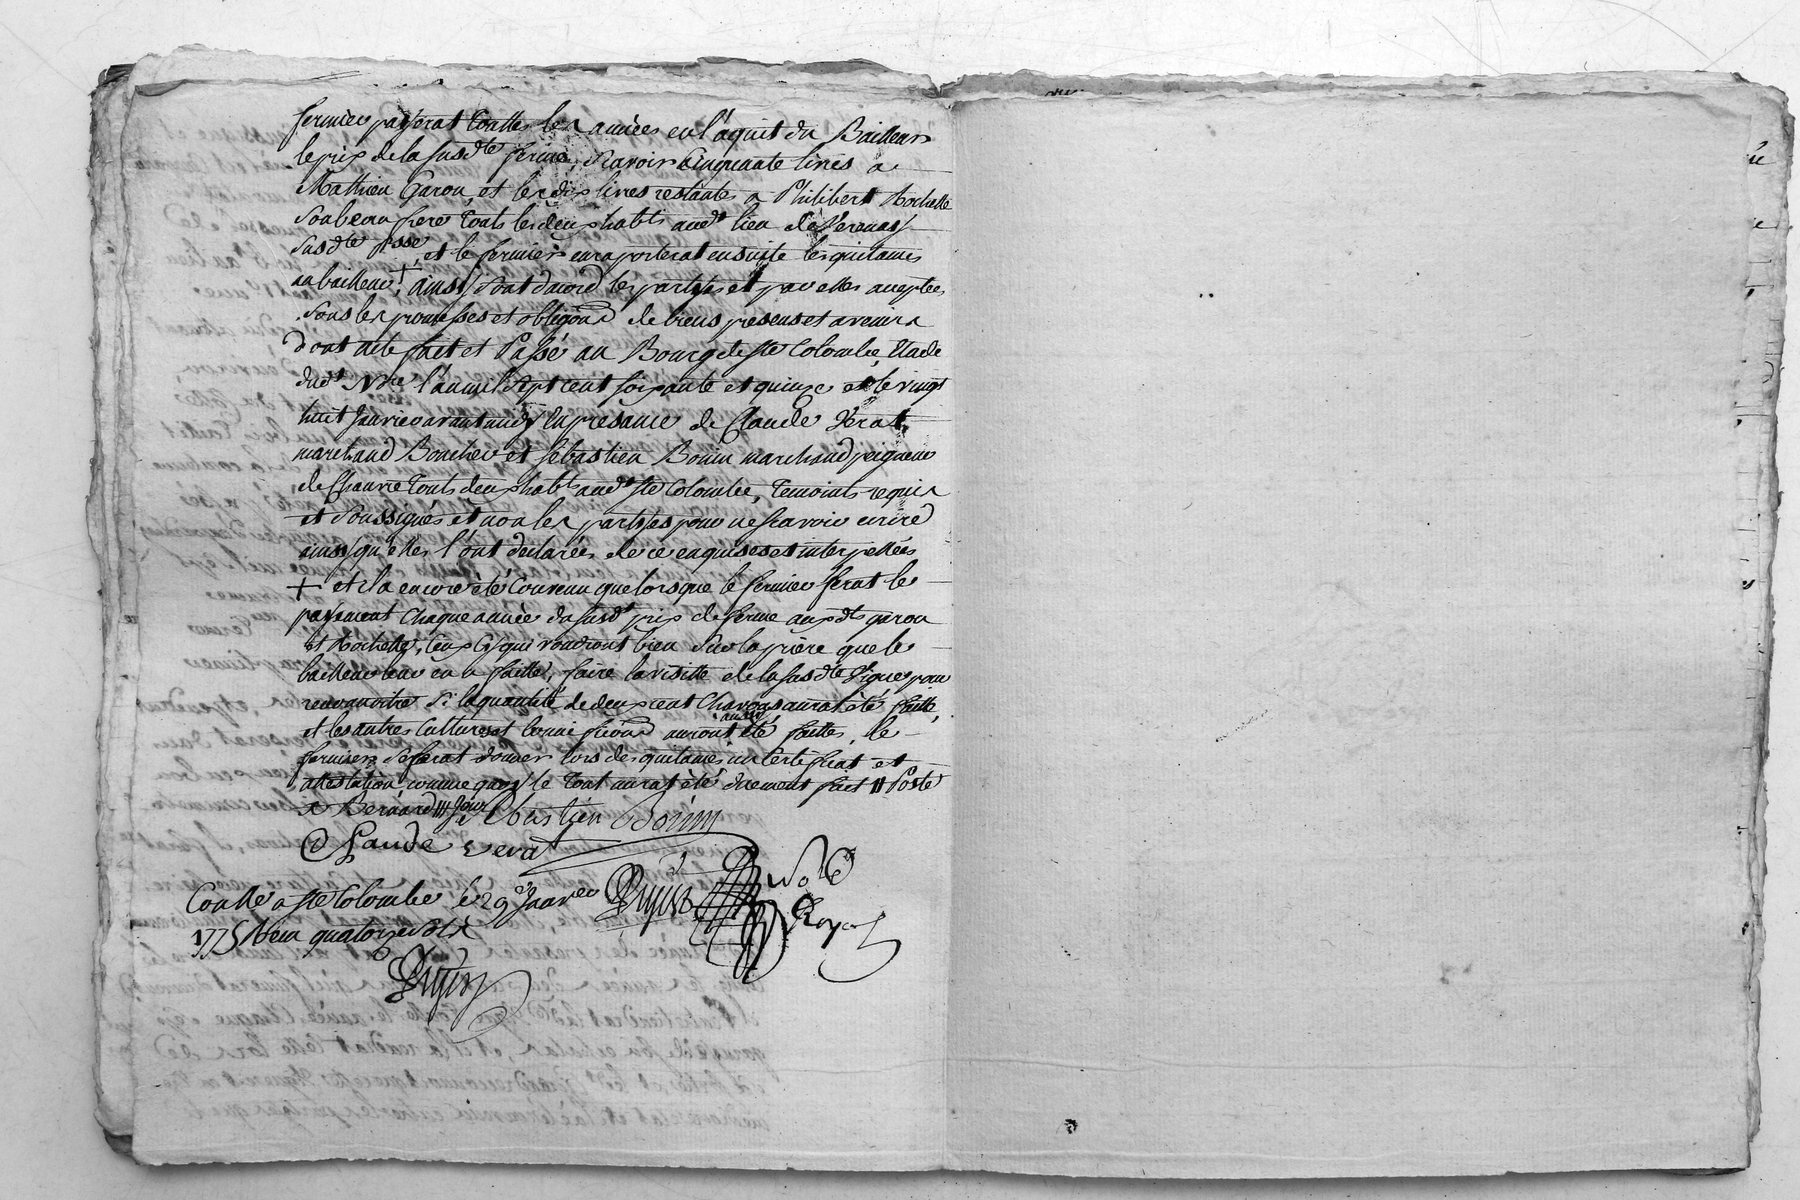 fermier payerat touttes les années en l'aquit du Bailleur
le prix de la susdte ferme, scavoir cinquante livres a
Mathieu Garon, et les dix livres restantes a Philibert Rochelle
son beau frere touts les deux habts audt lieu de Verenay
susdte psse, et le fermier en raporterat ensuitte les quitances
au bailleur + ainsy sont d'acord les partyes et par elles aceptées
sous les promesses et obligons de biens presens et avenirs
dont acte fait et Passé au Bourg de ste Colombe, Etude
dudt Nre l'an mil sept cent soixante et quinze et le vingt
huit Janvier avant midy En presance de Claude Verat,
marchand Boucher et sebastien Bonin marchand peigneur
de Chanvre touts deux habts audt ste Colombe, temoints requis
et soussignés et non les partyes pour ne scavoir ecrire
ainsy qu'elles l'ont declarées de ce enquises et interpellées
+ et il a encore été Convenu que lorsque le fermier ferat le
payement Chaque année du susdt prix de ferme auxdts garon
et Rochelle, ceux cy qui voudront bien sur la prière que le
bailleur leur en a faitte, faire la visitte de la susdte Vigne pour
reconnoitre si la quantité de deux cent Chavons aurat été faitte,
et les autres Cultures et bonnifications auront aussy été faittes, le
fermier se ferat donner lors des quitances un Certificat et
attestation comme quoy le tout aurat été duement fait // Poste
a Bernard /// Jour Sebastien Bonin
Claude verat
Conllé a ste Colombe le 29 Janvier
1775 Reçu quatorze sols